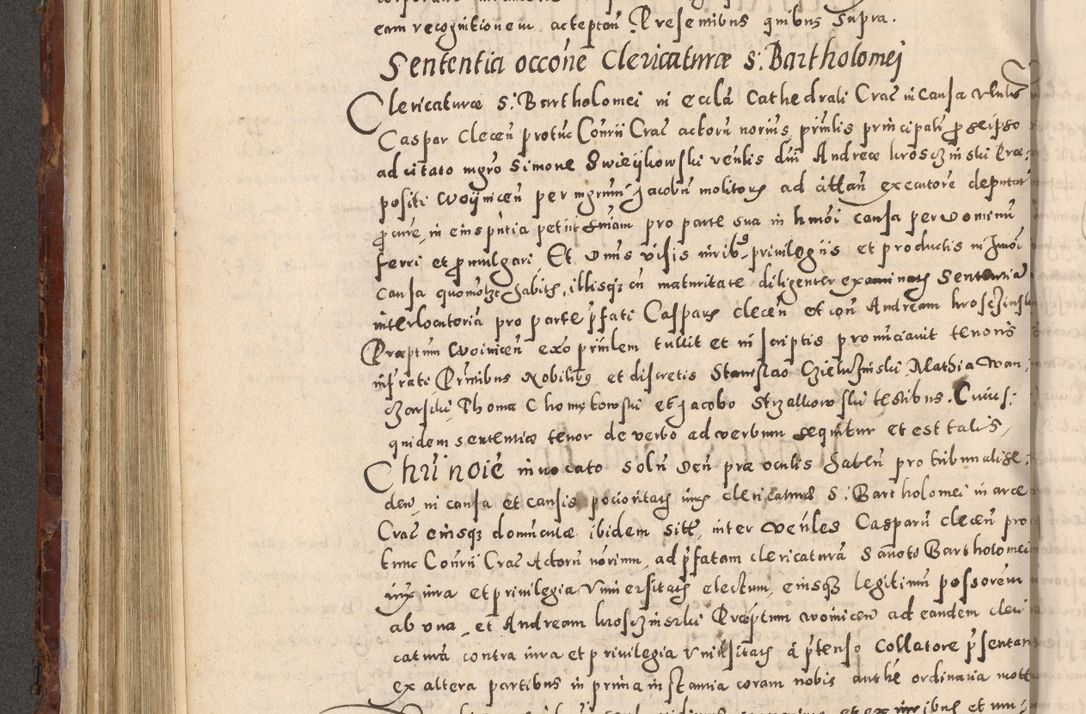 eam recognitionem acceptan̄ Presentibus quibus supra.
Sententia occōne Clericaturæ S. Bartholomej
Clericaturæ S. Bartholomei in ecclā Cathedrali Crac̄ in causa vtulis
Caspar Clecen̄ protūc Cōnrii Crac̄ actorū nōrius prīnlis principalis p seipso
ad citato mgrō Simone Swieijkowski venlis dnī Andreæ kroscziński Præ
positi Woijnicen̄ per mgrum Jacobū molitorꝭ ad attān executore deputat
ꝓcure, in eius pn̄tia petiit sn̄iam pro parte sua in hmōi causa per nos
ferri et ꝓmulgari Et nos visis iuribꝰ priuilegiis et productis in hmōi
causa quomotze habitꝭ, illisqꝫ cū maturitate diligenter examinatꝭ Sententiā
interlocutoriā pro parte p̄fati Casparꝭ clecen̄ et cōn Andream kroscżinsk
Præptum Woinicen̄ exo prīnlem tulit et in scriptis pronūciauit tenoris
infrāti Prn̄tibus Nobilibꝰ et discretis Stanislao Czieluzinski Mathia Wan
czarski Thoma Chomętowski et Jacobo Strzałkowski testibus. Cuius
quidem sententiæ tenor de verbo ad verbum sequitur et est talis,
Chrī noīe inuocato solū Deū præ oculis haben̄ pro tribunali se
den̄, in causa et causis pocioritatꝭ iurꝭ clericaturæ S. Bartholomei in arce
Crac̄ eiusqꝫ domūculæ ibidem sitæ, inter venles Casparū clecen̄ pro
tunc Cōnrii Crac̄ Actorū nōrium, ad p̄fatam clericaturā Sancto Bartholomei
iurꝭ iura et priuilegia Vniuersitatꝭ electum, eiusqꝫ legitimū possorem
ab vna, et Andream kroscżinski Præptum woinicen̄ ad eandem cleri
caturā contra iura et priuilegia vniu̅sitatꝭ à p̄tenso Collatore p̄sentan
ex altera partibus in prima instantia coram nobis authē ordinaria